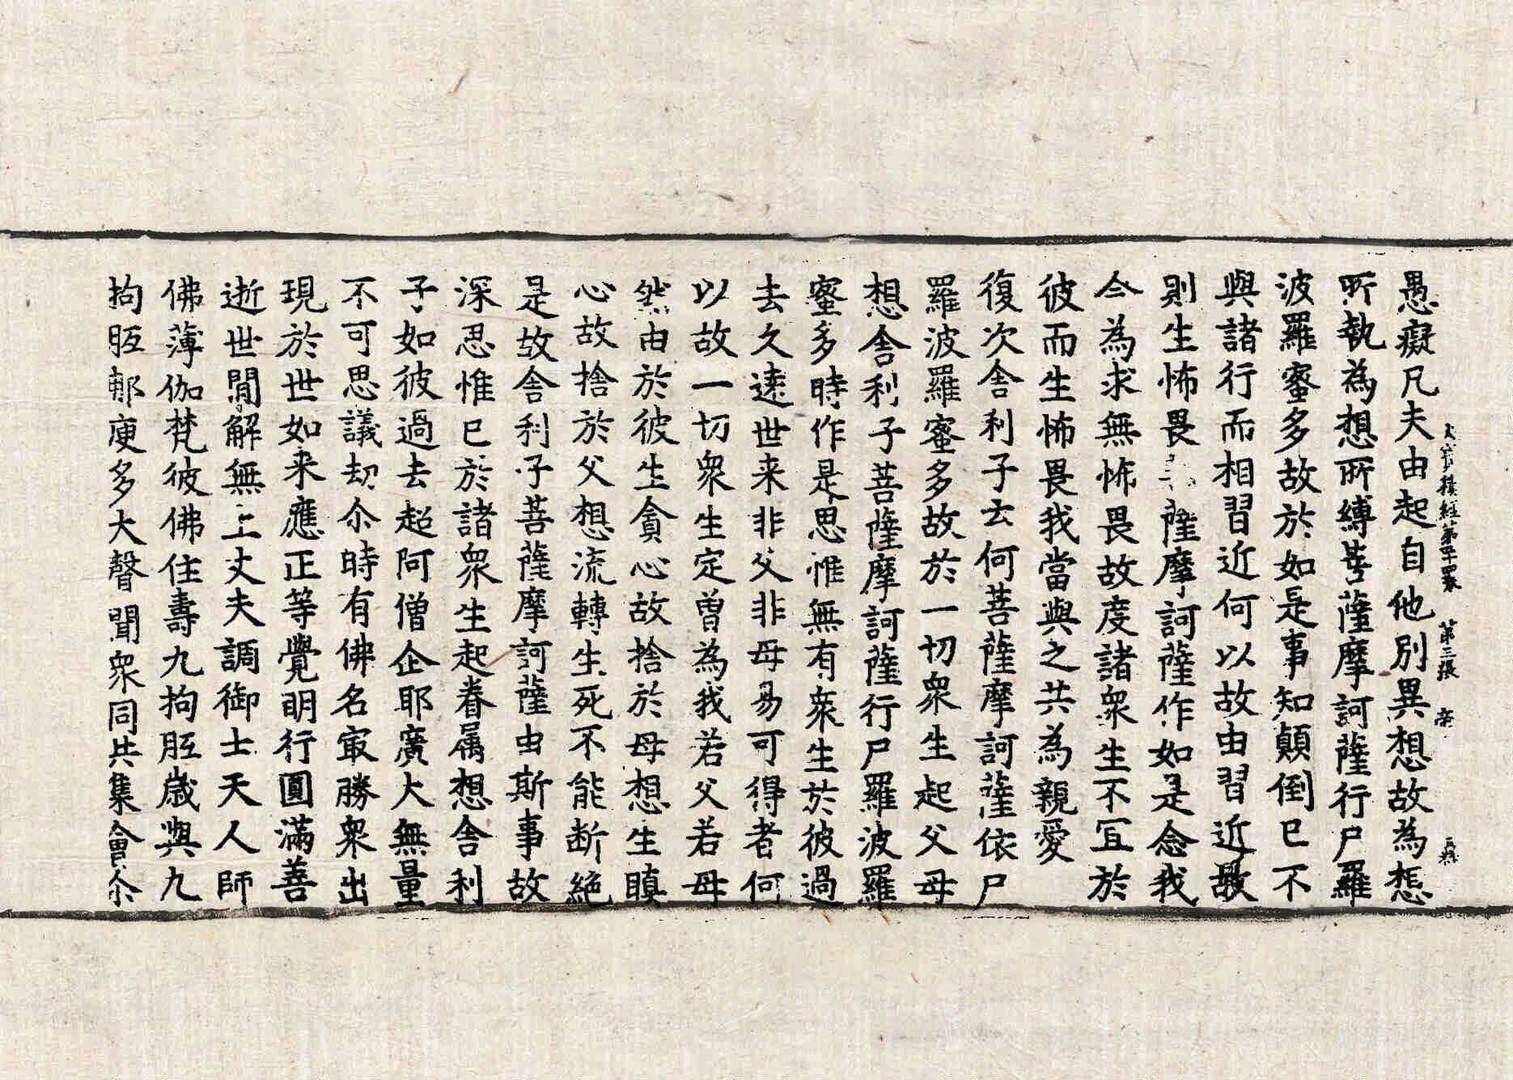 大寶積經第 第三張
愚癡凡夫由起自他別異想故為想
所執為想所縛菩薩摩訶薩行尸羅
波羅蜜多故於如是事知顛倒已不
與諸行而相習近何以故由習近故
則生怖畏薩摩訶薩作如是念我
今為求無怖畏故度諸衆生不冝於
彼而生怖畏我當與之共為親愛
復次舍利子云何菩薩摩訶薩依尸
羅波羅蜜多故於一切衆生起父母
想舍利子菩薩摩訶薩行尸羅波羅
蜜多時作是思惟無有衆生於彼過
去久遠世来非父非母易可得者何
以故一切衆生定曾為我若父若母
然由於彼生貪心故捨於母想生瞋
心故捨於父想流轉生死不能断絶
是故舍利子菩薩摩訶薩由斯事故
深思惟已於諸衆生起眷属想舍利
子如彼過去超阿僧企耶廣大無量
不可思議劫尒時有佛名㝡勝衆出
現於世如来應正等覺明行圓滿善
逝世間解無上丈夫調御士天人師
佛薄伽梵彼佛住壽九拘胝歲與九
拘胝那庾多大聲聞衆同共集會尒